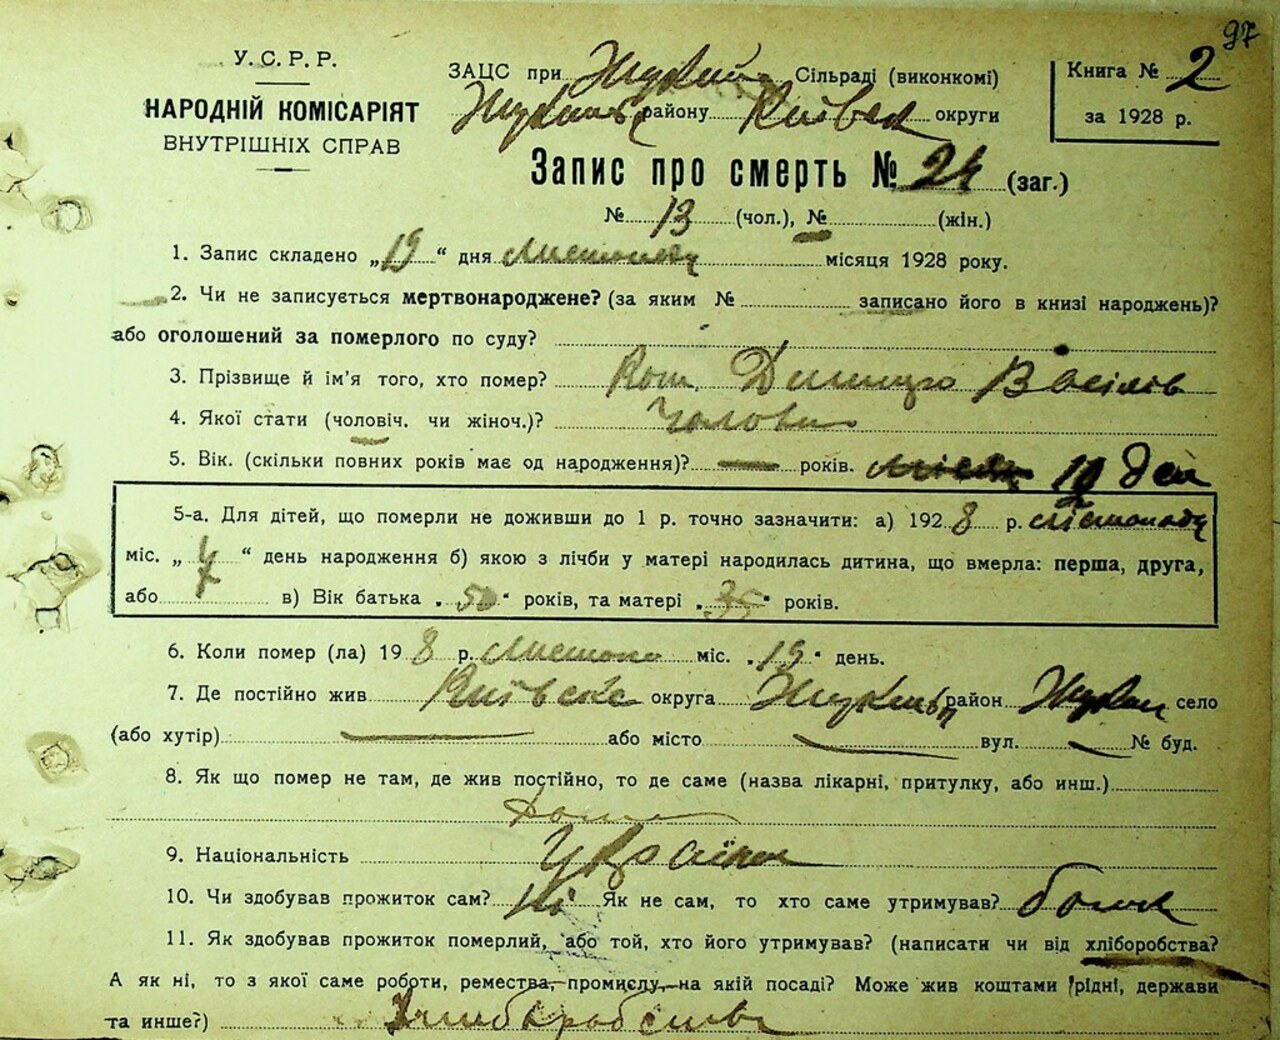 97
У. С. Р. Р.
НАРОДНІЙ КОМІСАРІЯТ
ВНУТРІШНІХ СПРАВ
ЗАЦС при Сільраді (виконкомі)
району Київськ округи
Книга № 2
за 1928 р.
Запис про смерть № 24 (заг.)
№ 13 (чол.), № (жін.)
1. Запис складено „19“ дня Листопада місяця 1928 року.
2. Чи не записується мертвонароджене? (за яким № записано його в книзі народжень)?
або оголошений за померлого по суду?
3. Прізвище й ім'я того, хто помер? Дмитро Васілів
4. Якої стати (чоловіч. чи жіноч.)? Чолови
5. Вік. (скільки повних років має од народження)? років. ден
5-а. Для дітей, що померли не доживши до 1 р. точно зазначити: а) 1928 р. лістопада
міс. „ “ день народження б) якою з лічби у матері народилась дитина, що вмерла: перша, друга,
або 7 в) Вік батька „50“ років, та матері „35“ років.
6. Коли помер (ла) 198 р. Листопа міс. „19“ день.
7. Де постійно жив Київське округа район село
(або хутір) або місто вул. № буд.
8. Як що помер не там, де жив постійно, то де саме (назва лікарні, притулку, або инш.)
Дома
9. Національність Українец
10. Чи здобував прожиток сам? Ні Як не сам, то хто саме утримував? батьк
11. Як здобував прожиток померлий, або той, хто його утримував? (написати чи від хліборобства?
А як ні, то з якої саме роботи, ремества, промислу, на якій посаді? Може жив коштами рідні, держави
та инше?)